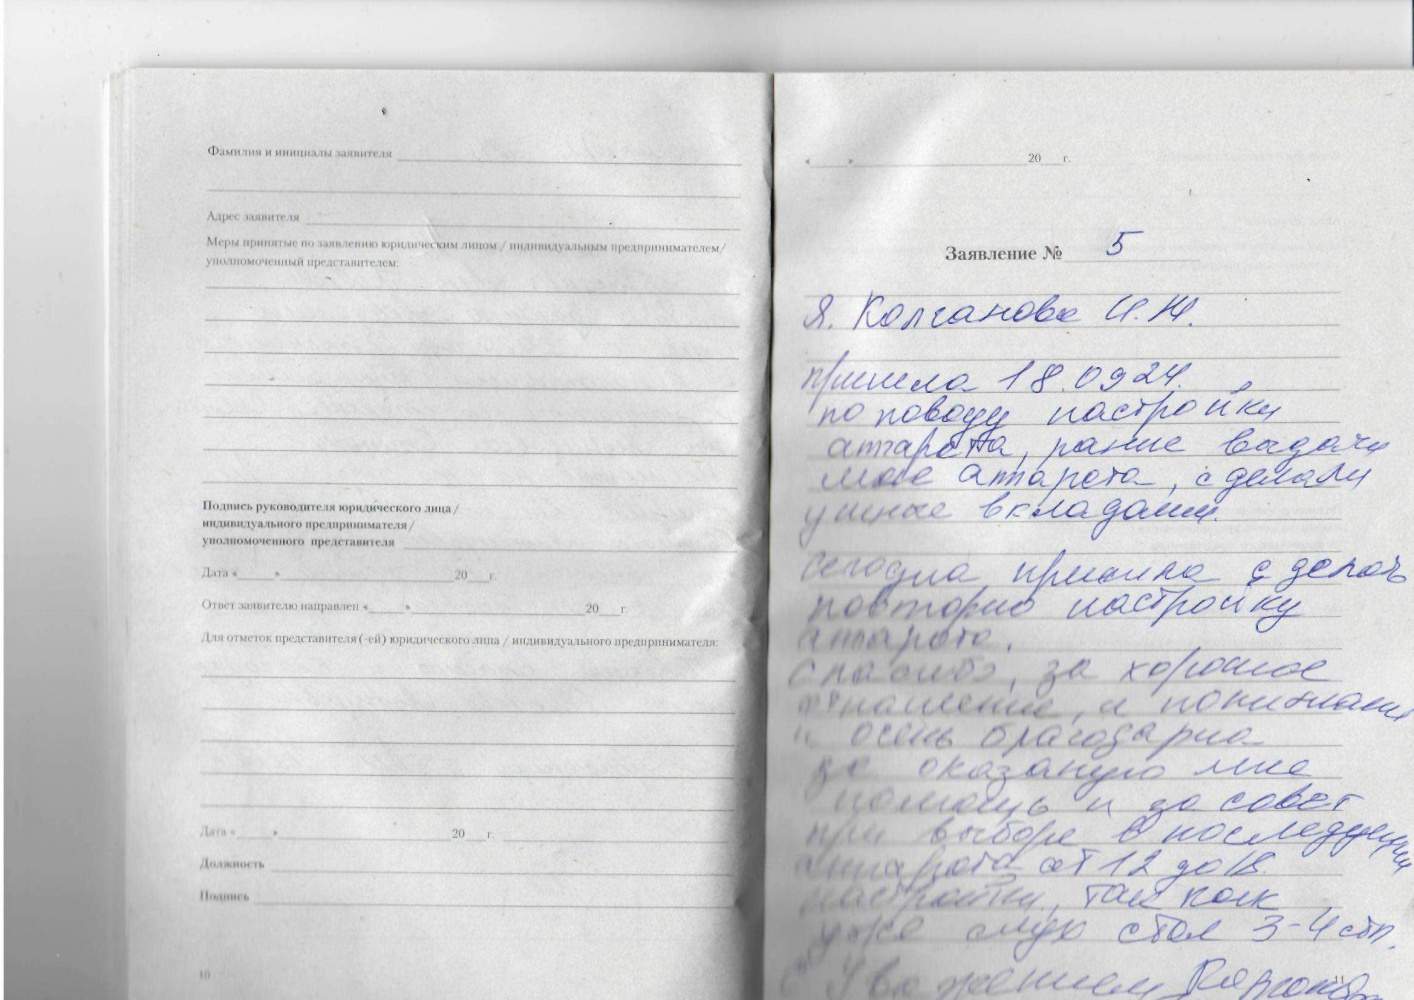 Фамилия и инициалы заявителя
Адрес заявителя
Меры принятые по заявлению юридическим лицом / индивидуальным предпринимателем/
уполномоченный представителем:
Подпись руководителя юридического лица /
индивидуального предпринимателя /
уполномоченного представителя
Дата « » 20 г.
Ответ заявителю направлен « » 20 г
Для отметок представителя (-ей) юридического лица / индивидуального предпринимателя:
Дата « » 20 г.
Должность
Подпись
10
« » 20 г.
Заявление № 5
Я. Колганова И.Н.
пришла 18.0924.
по поводу настройки
аппарата, ранее выдачи
мне аппарата, сделали
ушные вкладыши.
сегодня пришла сделать
повторно настройку
аппарата.
спасибо, за хорошее
и понимание
и очень благодарна
за оказаную мне
помощь и за совет
при выборе в последующем
аппарата от 12 до 18
настройки, так как
уже слух стал 3-4 стп.
с Уважением
11